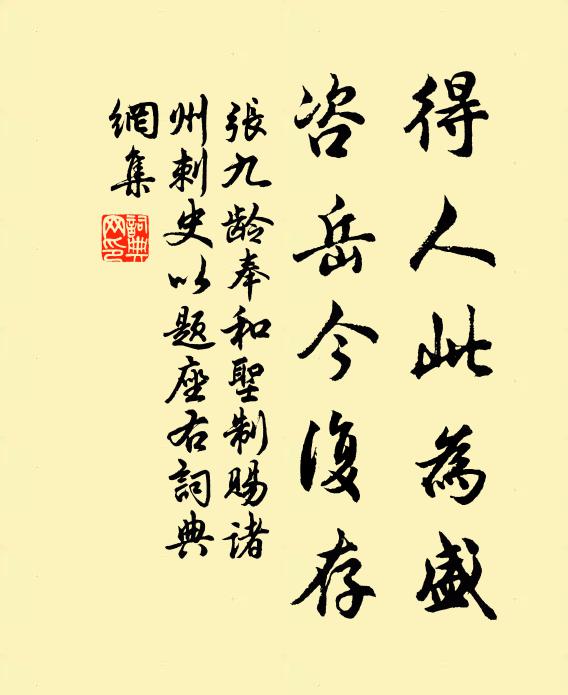 得人此為盛
咨岳今復存
張九龄奉和聖制賜諸
州刺史以题座右詞典
網集
詞典
网印